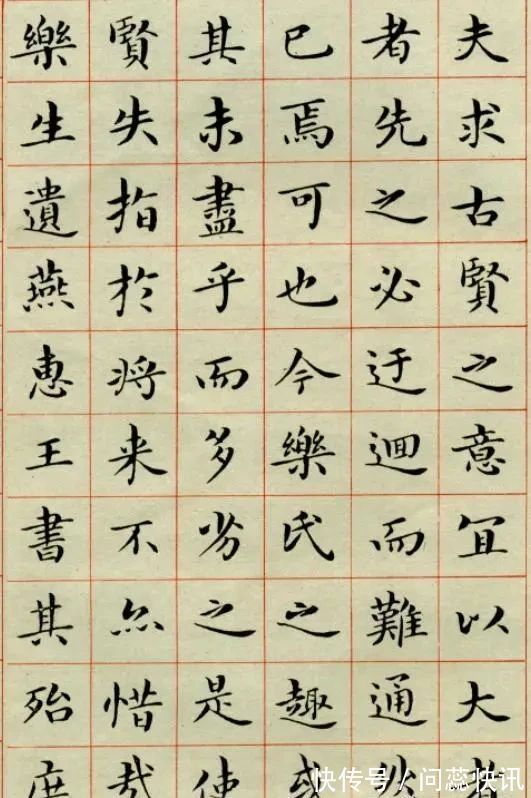 夫求古賢之意冝以大者
者先之必迂迴而難通
已焉可也今樂氏之趣或
其未盡乎而多劣之是使
賢失指於将来不亦惜哉
樂生遺燕惠王書其殆庶
快传号/问蕊快讯